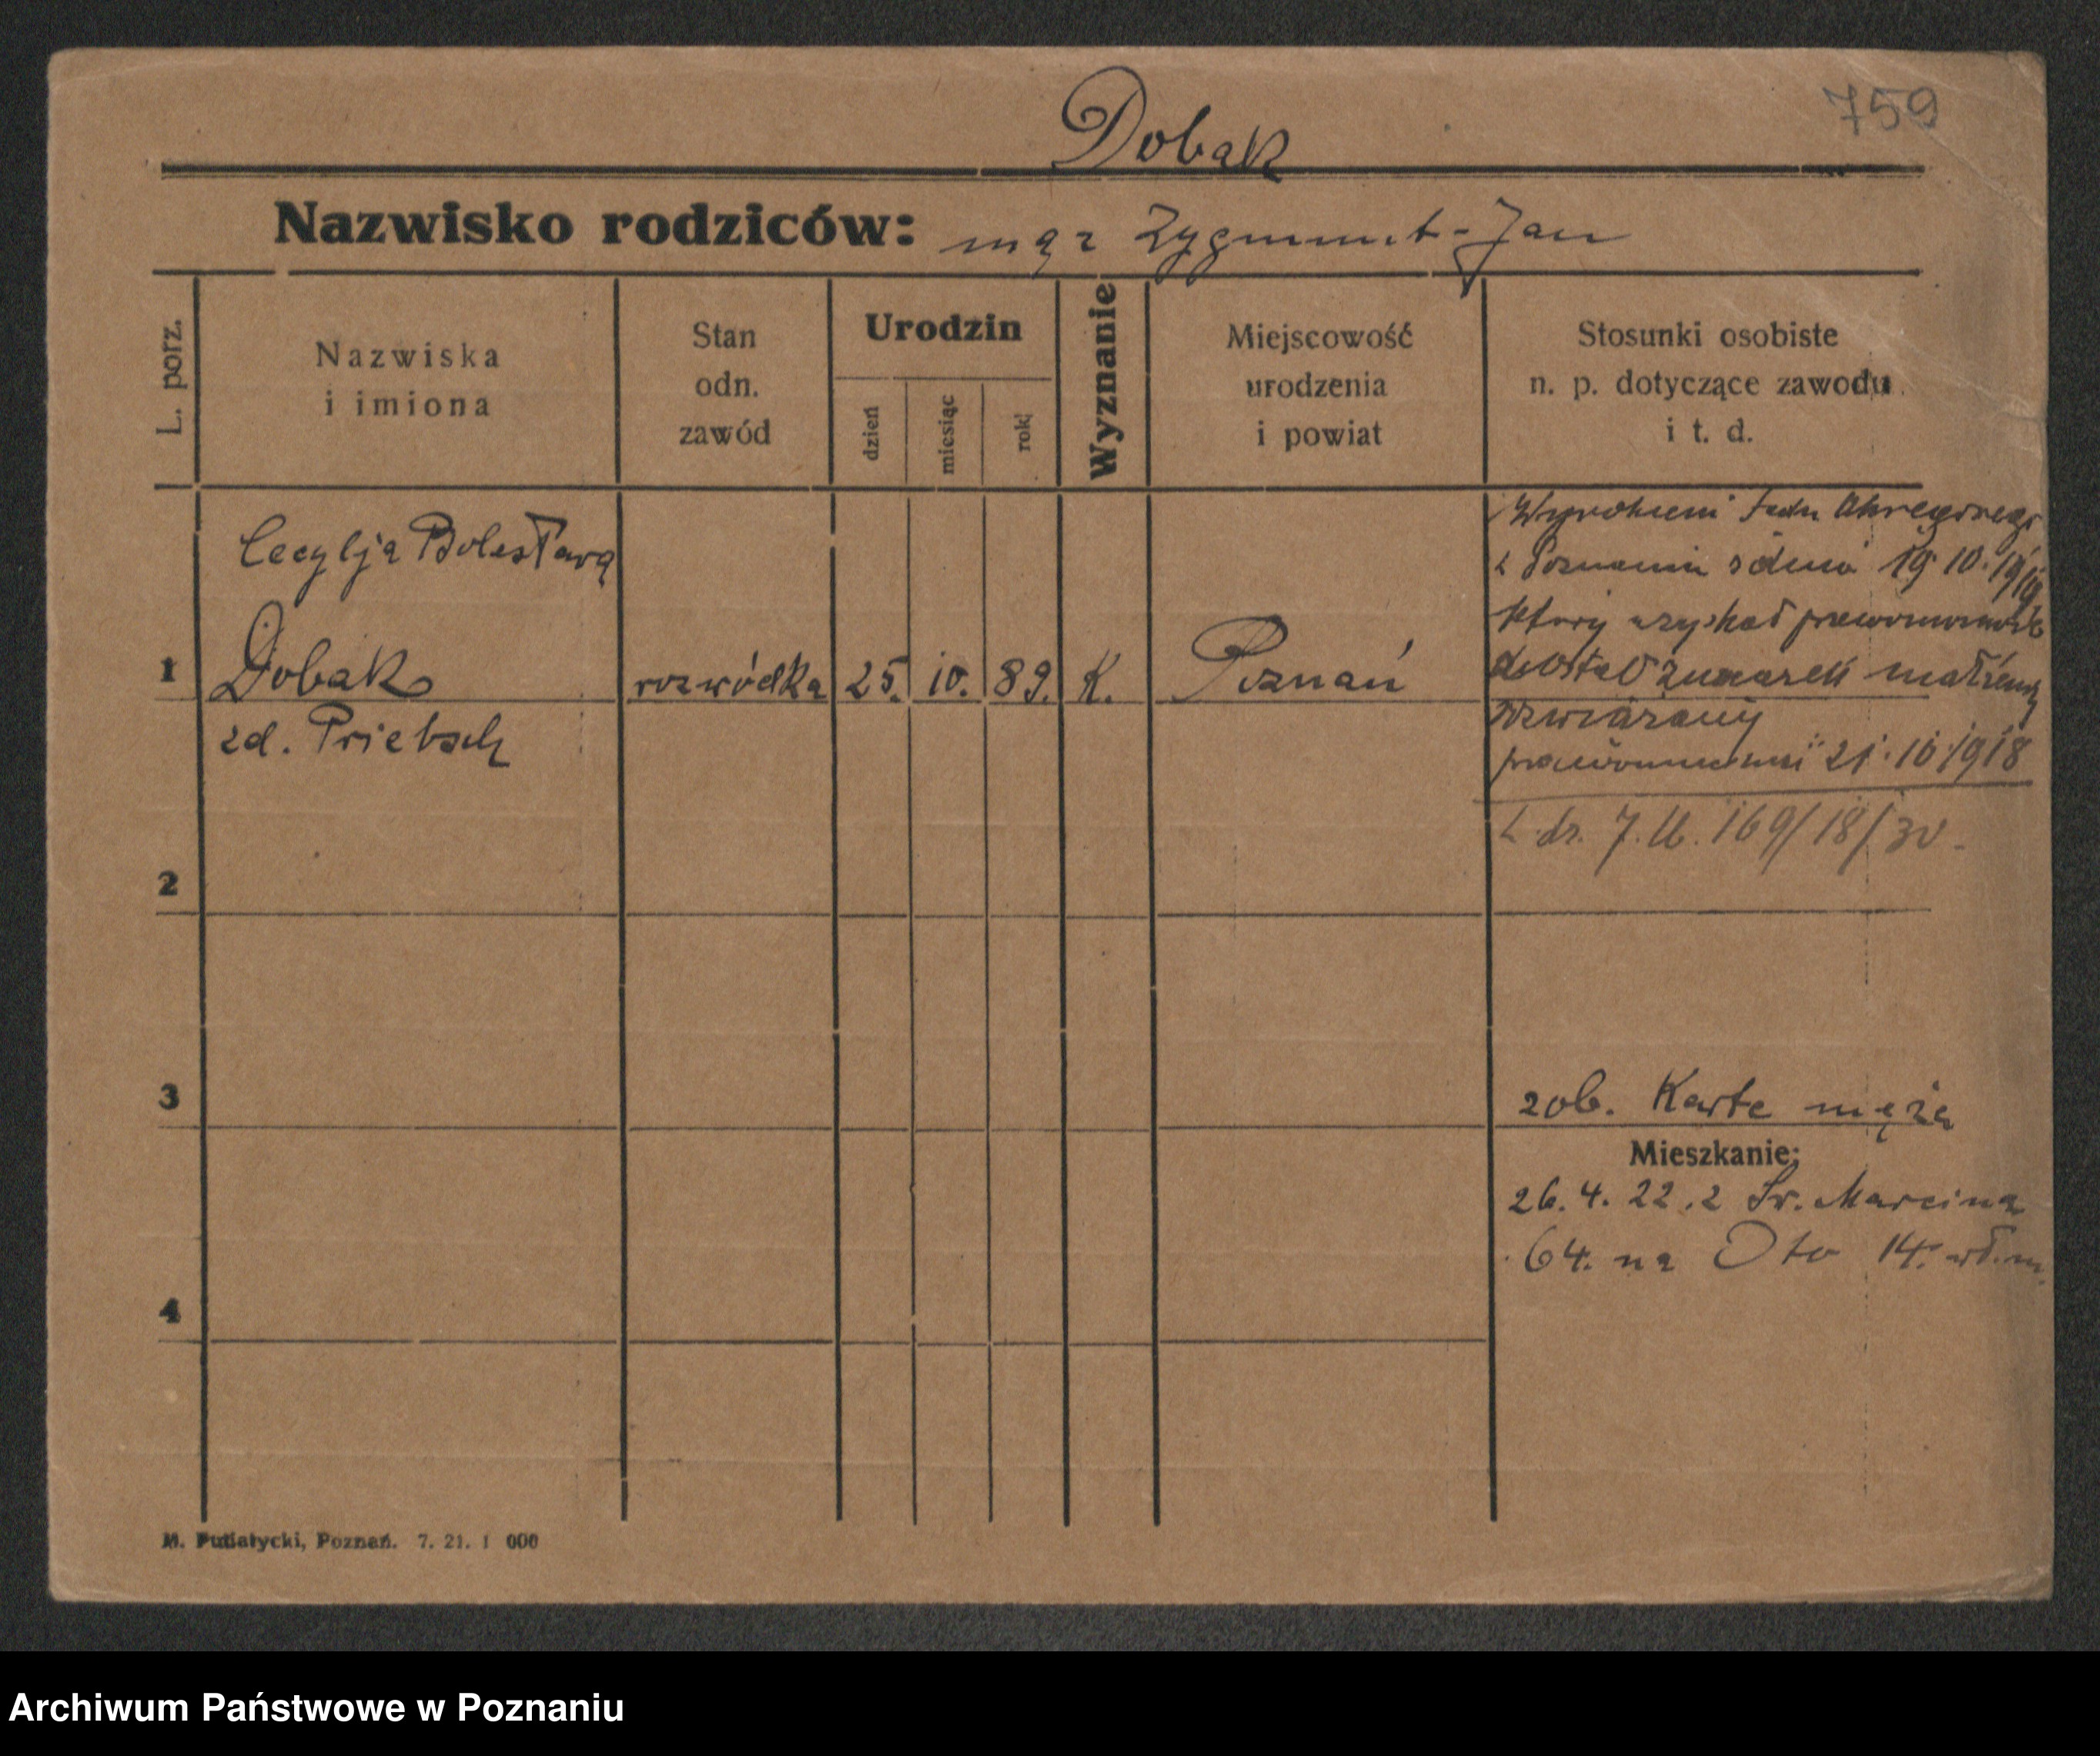 759
Dobak
Nazwisko rodziców: mąż Zygmunt-Jan
L. porz.
Nazwiska
i imiona
Stan
odn.
zawód
Urodzin
dzień
miesiąc
rok
Wyznanie
Miejscowość
urodzenia
i powiat
Stosunki osobiste
n. p. dotyczące zawodu
i t. d.
Cecylja Bolesława
1 Dobak rozwódka 25. 10. 89. K. Poznań
zd. Priebsch
Wyrokiem Sądu Okręgowego
z Poznania z dnia 19 10.
który uzyskał
został związek małżeński
rozwiązany
21.10.1918
L. dz. 7. U. 169/18/30.
2
3
zob. Kartę męża
Mieszkanie:
26. 4. 22. z Św. Marcina
64. na Oto 14. wł. m.
4
M. Putiatycki, Poznań. 7. 21. 1 000
Archiwum Państwowe w Poznaniu